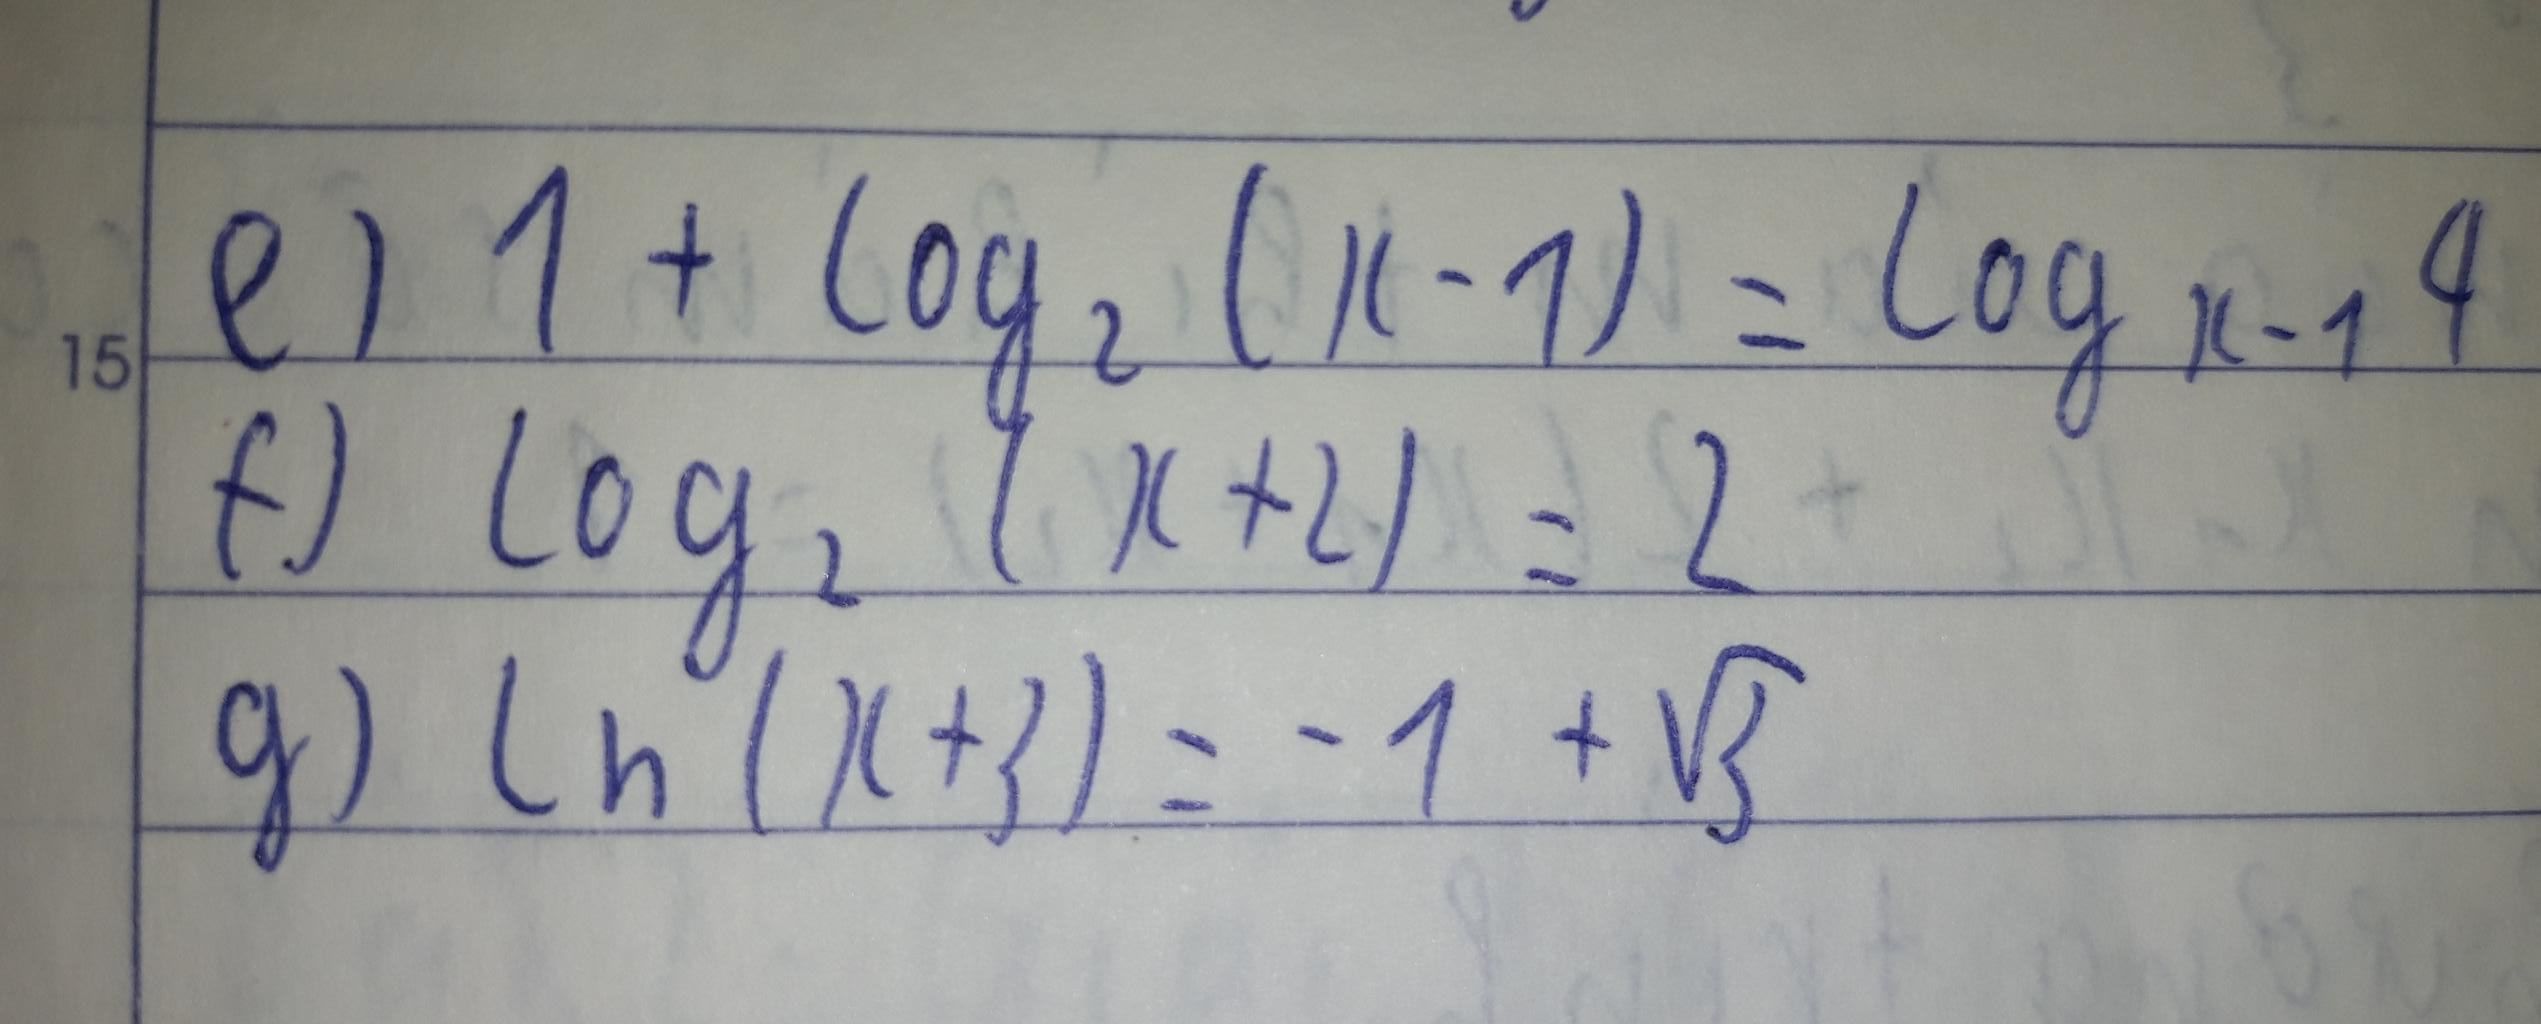 e) 1 + log₂ (x-1) = log ₓ₋₁ 4
15
f) log₂ (x+2) = 2
g) ln (x+3) = -1 + √3